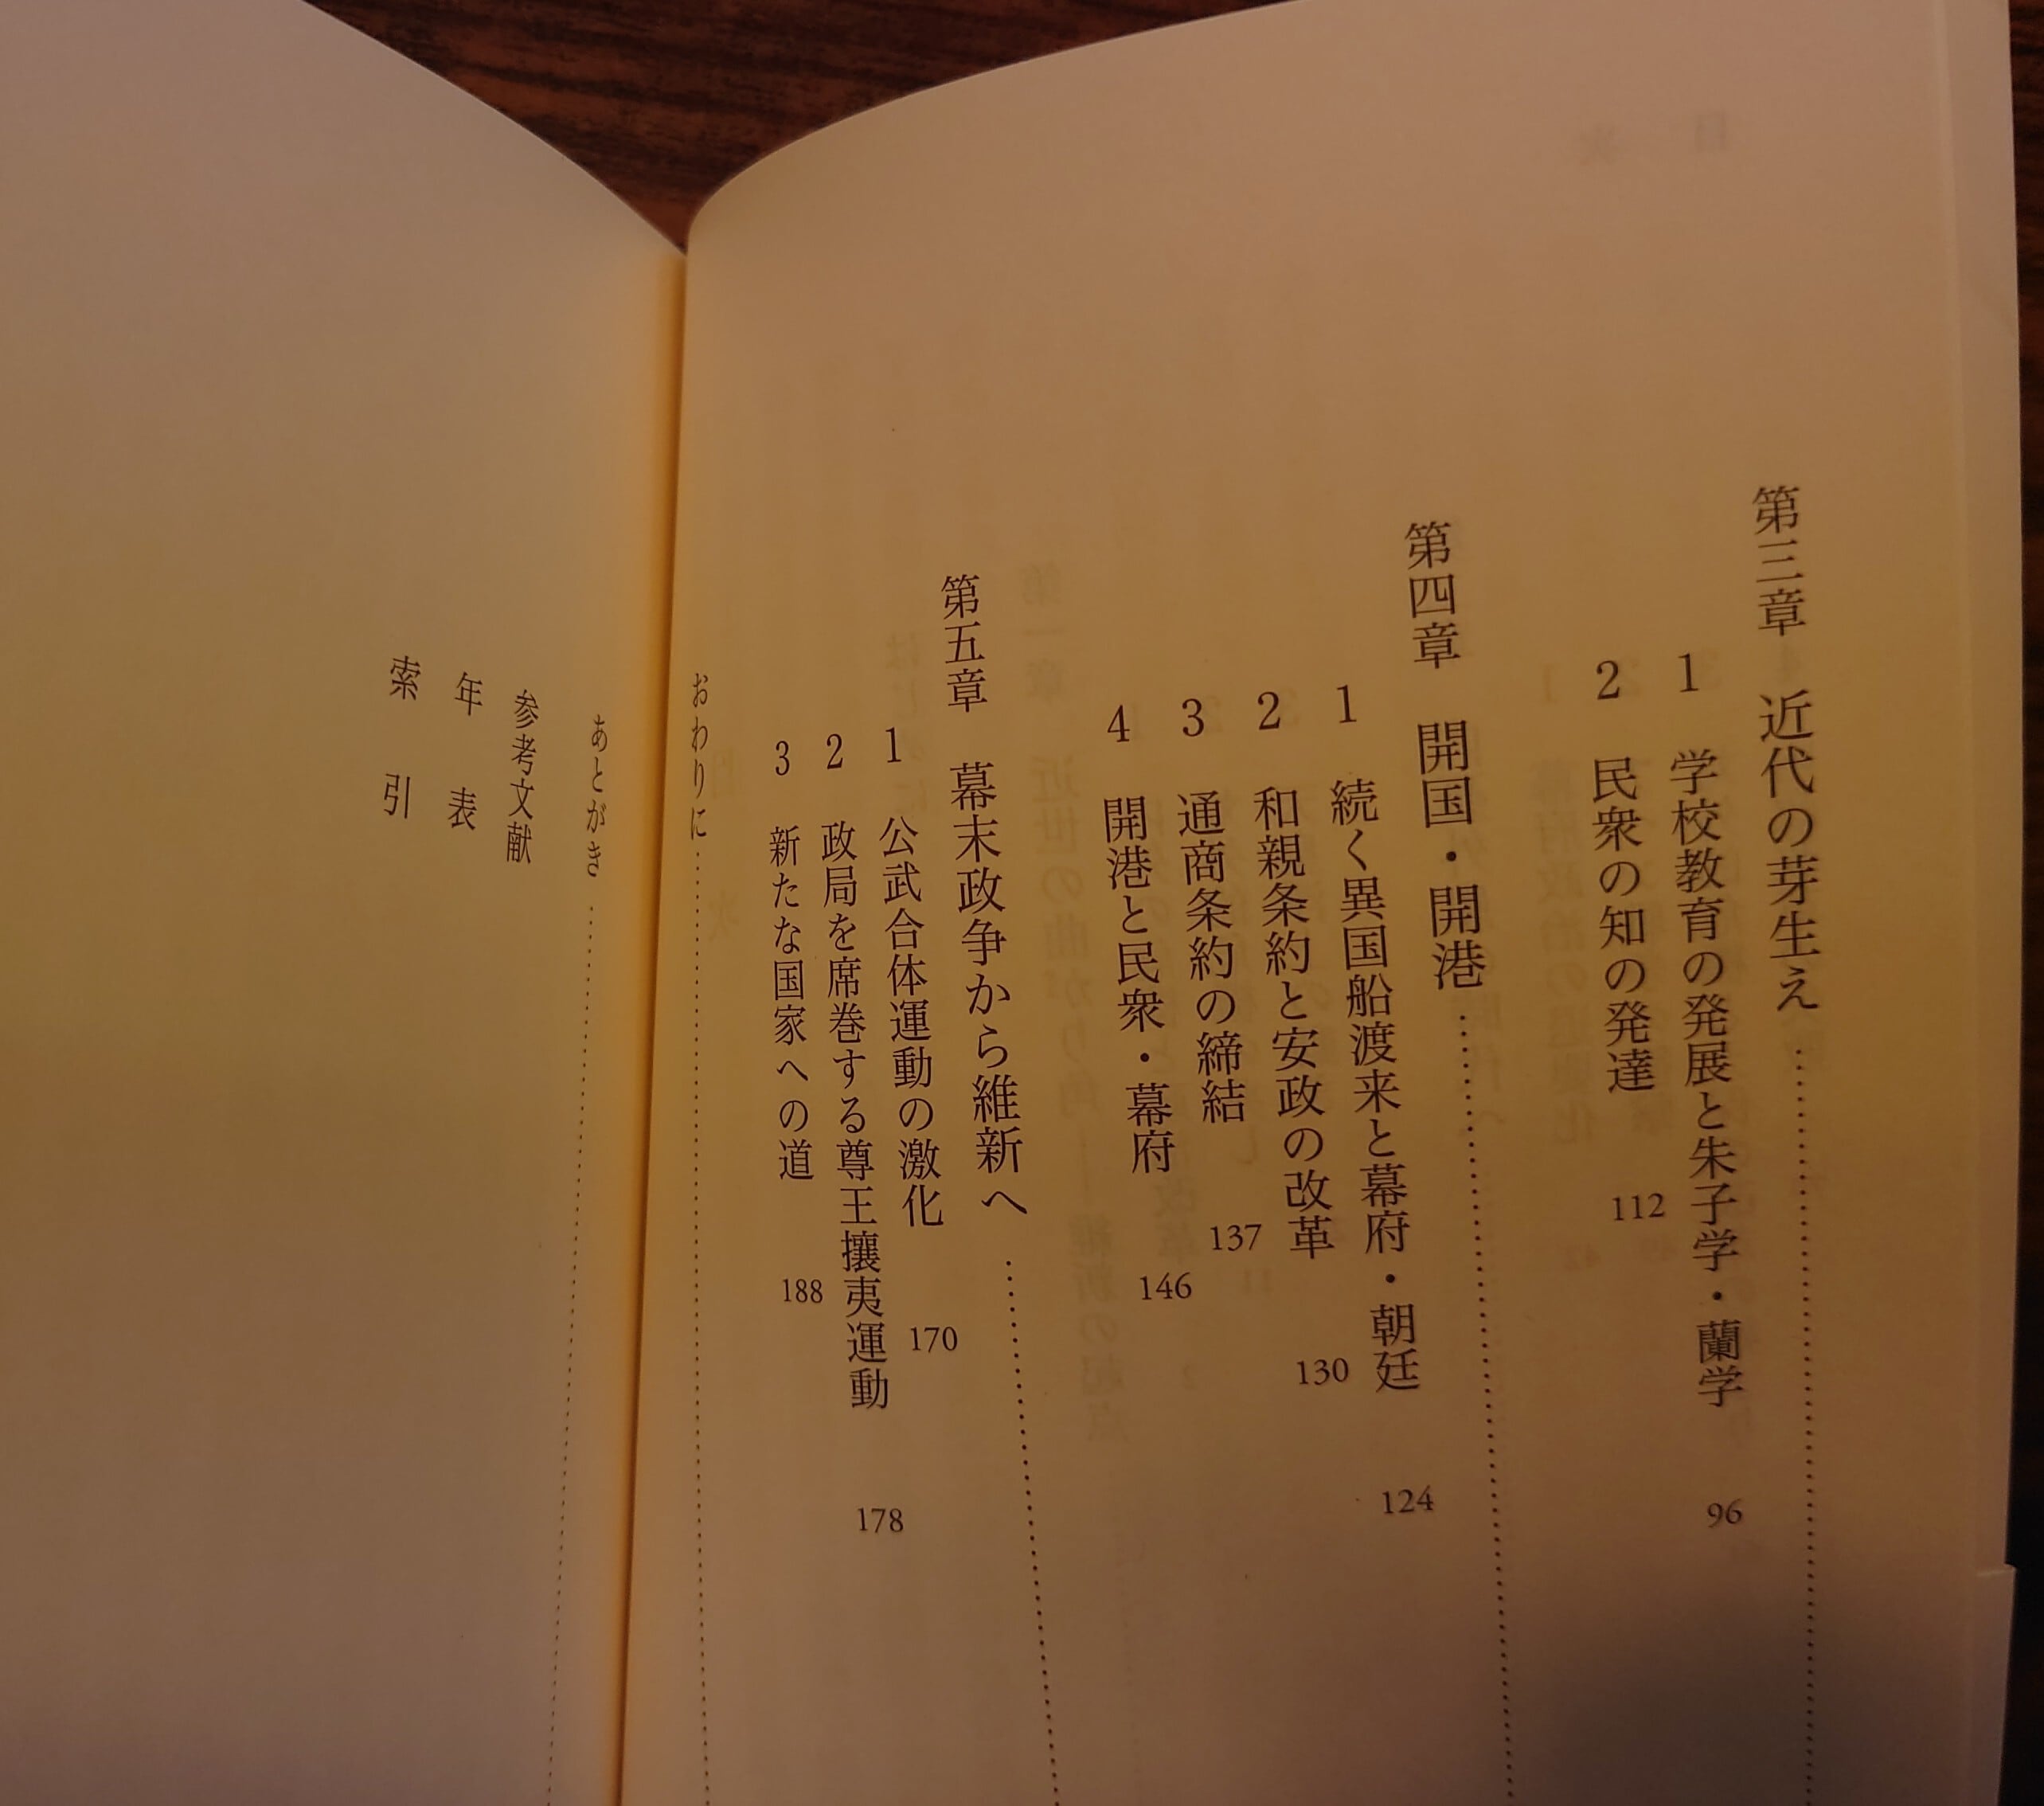 第三章 近代の芽生え……
1 学校教育の発展と朱子学・蘭学 96
2 民衆の知の発達 112
第四章 開国・開港……
1 続く異国船渡来と幕府・朝廷 124
2 和親条約と安政の改革 130
3 通商条約の締結 137
4 開港と民衆・幕府 146
第五章 幕末政争から維新へ……
1 公武合体運動の激化 170
2 政局を席巻する尊王攘夷運動 178
3 新たな国家への道 188
おわりに……
あとがき……
参考文献
年表
索引